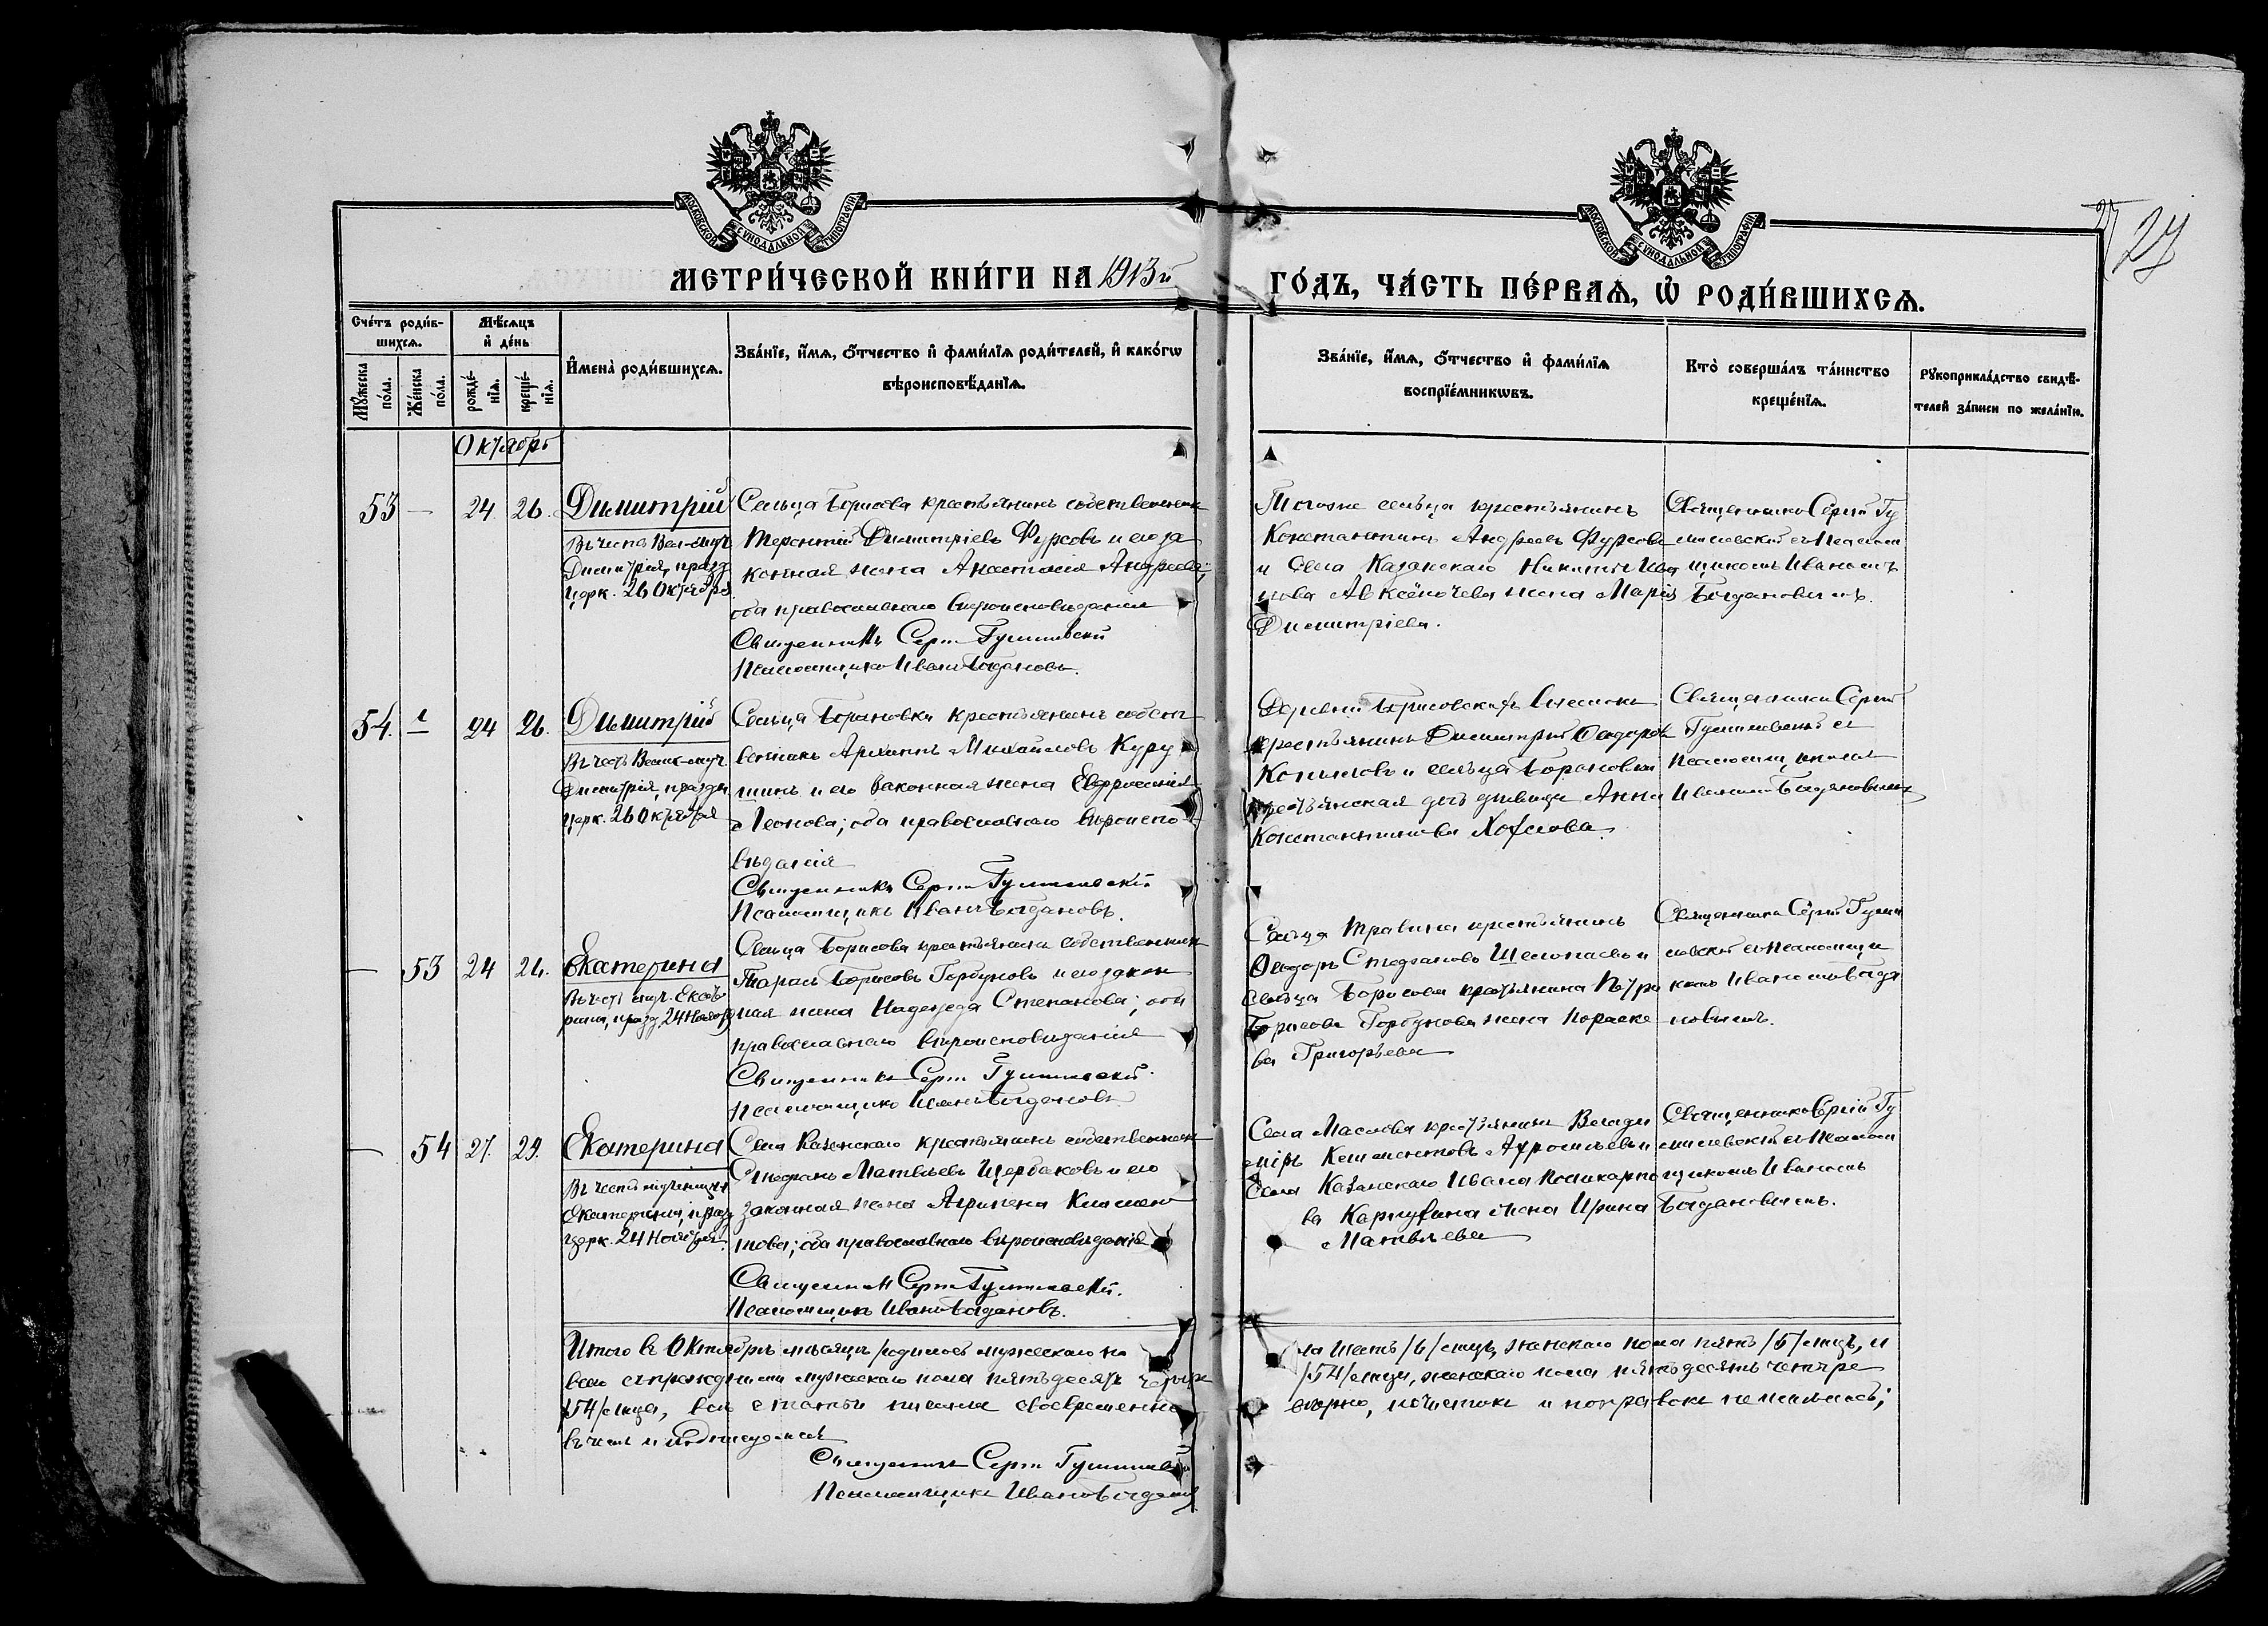 МОСКОВСКОЙ СѴНОДАЛЬНОЙ ТИПОГРАФІИ
МОСКОВСКОЙ СѴНОДАЛЬНОЙ ТИПОГРАФІИ
27
МЕТРИ́ЧЕСКОЙ КНИ́ГИ НА 1913й
ГО́ДЪ, ЧА́СТЬ ПЕ́РВАѦ, Ѡ҆ РОДИ́ВШИХСѦ.
Сче́тъ роди́в-
шихсѧ.
Мѣ́сѧцъ
и҆ де́нь
Мꙋ́жеска
по́ла.
Же́нска
по́ла.
рожде́-
нїѧ.
креще́-
нїѧ.
И҆мена̀ роди́вшихсѧ.
Зва́нїе, и҆́мѧ, о҆́тчество и҆ фами́лїѧ роди́телей, и҆ како́гѡ
вѣроисповѣ́данїѧ.
Зва́нїе, и҆́мѧ, о҆́тчество и҆ фами́лїѧ
воспрїе́мникѡвъ.
Кто̀ соверша́лъ та́инство
креще́нїѧ.
Рꙋкоприкла́дство свидѣ́-
телей за́писи по жела́нїю.
Октябрь
53 — 24. 26.
Димитрій
Въ честь Вел-муч
Димитрія, празд
церк. 26 Октября
Сельца Борисова крестьянинъ собственник
Терентій Димитріевъ Фурсовъ и его за
конная жена Анастасія Андреева;
оба православнаго вѣроисповѣданія
Священникъ Сергій
Псаломщикъ Иванъ Богдановъ.
Того же сельца крестьянинъ
Константинъ Андреевъ Фурсовъ
и Села Казанскаго Никиты Ива
нова жена Марія
Димитріева.
Священникъ Сергій Гу
съ псалом
щикомъ Иваномъ
Богдановымъ.
54. — 24 26.
Димитрій
Въ честь Велик-муч
Димитрія, праздн
церк. 26 Октября
Сельца Борановки крестьянинъ собст
венникъ Архипъ Михайловъ Куру
шинъ и его законная жена Евфросинія
Леонова; оба православнаго вѣроиспо
вѣданія
Священникъ Сергій
Псаломщикъ Иванъ Богдановъ.
Деревни Борисовскихъ
крестьянинъ Димитрій Ѳеодоровъ
Копыловъ и сельца Борановки
крестьянская дочь дѣвица Анна
Константинова
Священникъ Сергій
съ
псаломщикомъ
Иваномъ Богдановымъ
— 53 24 26.
Екатерина
Въ честь муч. Екате
рины, празд. 24 Ноябр
Сельца Борисова крестьянинъ собственник
Тарасъ Борисовъ Горбуновъ и его закон
ная жена Надежда Степанова; оба
православнаго вѣроисповѣданія
Священникъ Сергій
Псаломщикъ Иванъ Богдановъ
Сельца Травина крестьянинъ
Ѳеодоръ Стефановъ и
сельца Борисова крестьянина Петра
Борисова Горбунова жена Параске
ва Григорьева
Священникъ Сергій
съ псаломщи
комъ Иваномъ Богда
новымъ.
— 54 27. 29.
Екатерина
Въ честь мученицы
Екатерины, празд
церк. 24 Ноября.
Села Казанскаго крестьянинъ собственник
Стефанъ Матвѣевъ Щербаковъ и его
законная жена Агрипена Климен
това; оба православнаго вѣроисповѣданія
Священникъ Сергій
Псаломщикъ Иванъ Богдановъ.
Села Маслова крестьянинъ Влади
міръ Климентовъ и
Села Казанскаго Ивана Поликарпо
ва жена Ирина
Матвѣева
Священникъ Сергій Гу
съ псалом
щикомъ Иваномъ
Богдановымъ.
Итого въ Октябрѣ мѣсяцѣ родилось мужескаго по
ла шесть /6/ лицъ, женскаго пола пять /5/ лицъ, и
всего съ прежними мужескаго пола пятьдесятъ четыре
/54/ лица, женскаго пола пятьдесятъ четыре
/54/ лица, всѣ статьи писаны своевременно
вѣрно, почистокъ и поправокъ не имѣлось;
въ чемъ и подписуемся
Священникъ Сергій
Псаломщикъ Иванъ Богдановъ